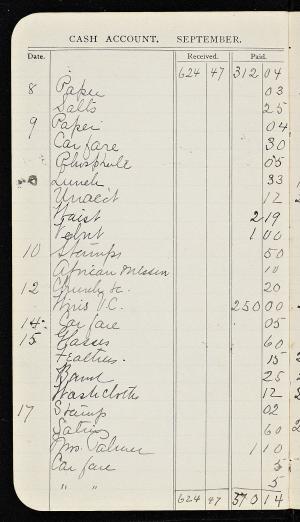 CASH ACCOUNT. SEPTEMBER.
Date. Received. Paid.
624 47 312 04
8 Paper 03
Salts 25
9 Paper 04
Car fare 30
05
Lunch 33
12
Waist 2 19
1 00
10 Stamps 50
African Mission 10
12 Church &c. 20
250 00
14 Car fare 05
15 Glasses 60
Feathers. 15
Band 25
Washcloth 12
17 Stamp 02
Satin 60
Mrs. Palmer 1 10
Car fare 5
" " 5
624 47 570 14